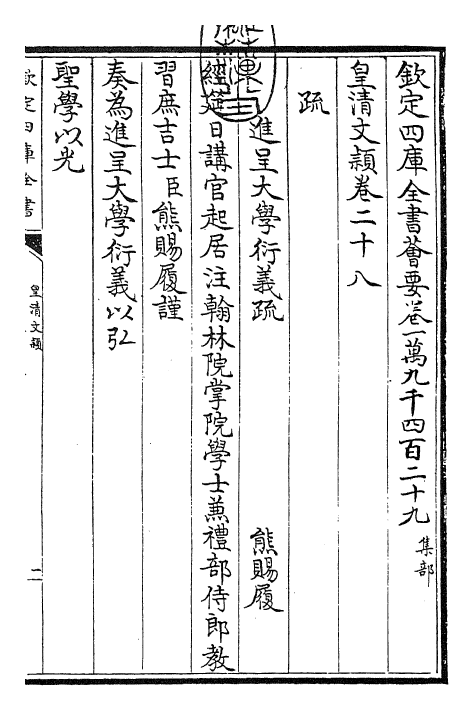 欽定四庫全書薈要卷一萬九千四百二十九 集部
皇清文穎卷二十八
疏
進呈大學衍義疏 熊賜履
經筵日講官起居注翰林院掌院學士兼禮部侍郎教
習庶吉士臣熊賜履謹
奏為進呈大學衍義以弘
聖學以光
欽定四庫全書
皇清文穎